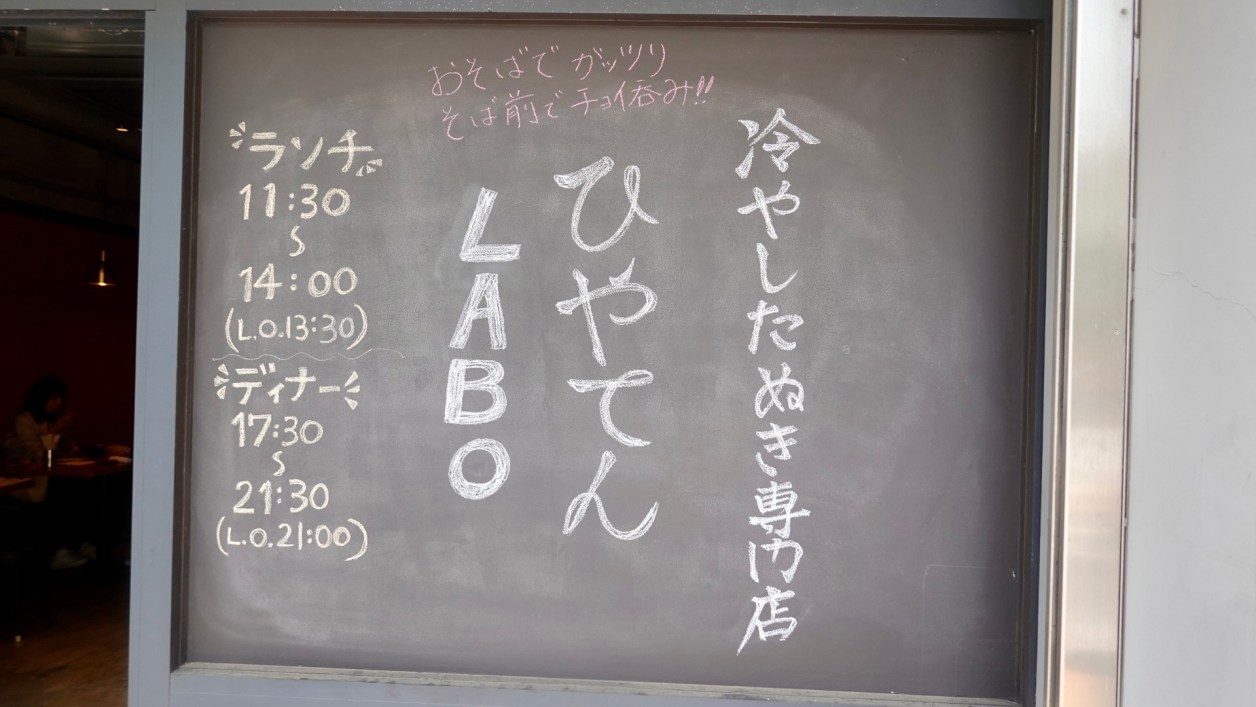 おそばでガッツリ
そば前でチョイ呑み!!
冷やしたぬき専門店
ひやてん
LABO
ランチ
11:30
〜
14:00
(L.O.13:30)
ディナー
17:30
〜
21:30
(L.O.21:00)